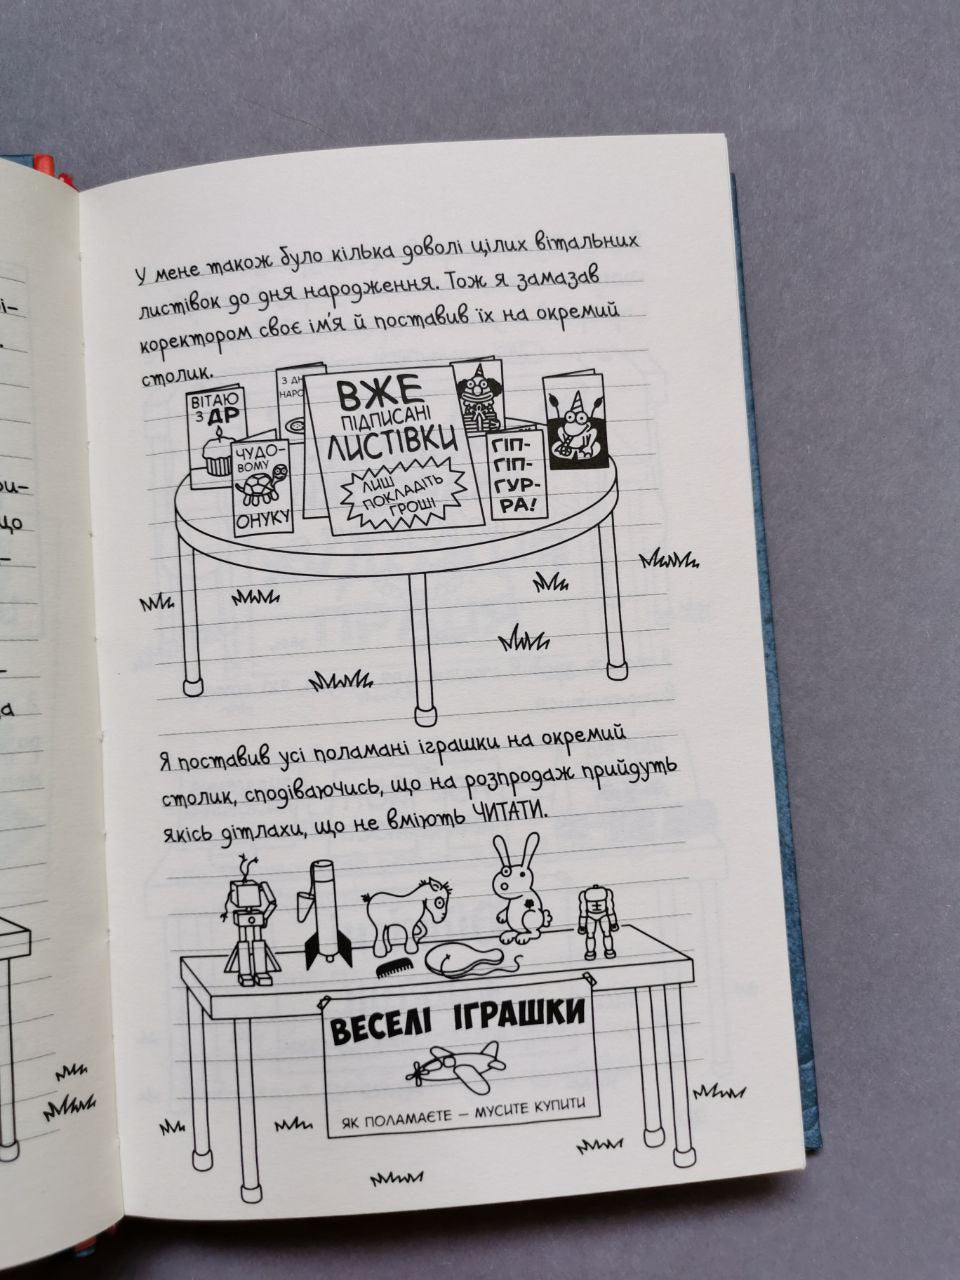 У мене також було кілька доволі цілих вітальних
листівок до дня народження. Тож я замазав
коректором своє ім'я й поставив їх на окремий
столик.
ВІТАЮ
З ДР
З ДН
НАРО
ЧУДО-
ВОМУ
ОНУКУ
ВЖЕ
ПІДПИСАНІ
ЛИСТІВКИ
ЛИШ
ПОКЛАДІТЬ
ГРОШІ
ГІП-
ГІП-
ГУР-
РА!
Я поставив усі поламані іграшки на окремий
столик, сподіваючись, що на розпродаж прийдуть
якісь дітлахи, що не вміють ЧИТАТИ.
ВЕСЕЛІ ІГРАШКИ
ЯК ПОЛАМАЄТЕ — МУСИТЕ КУПИТИ